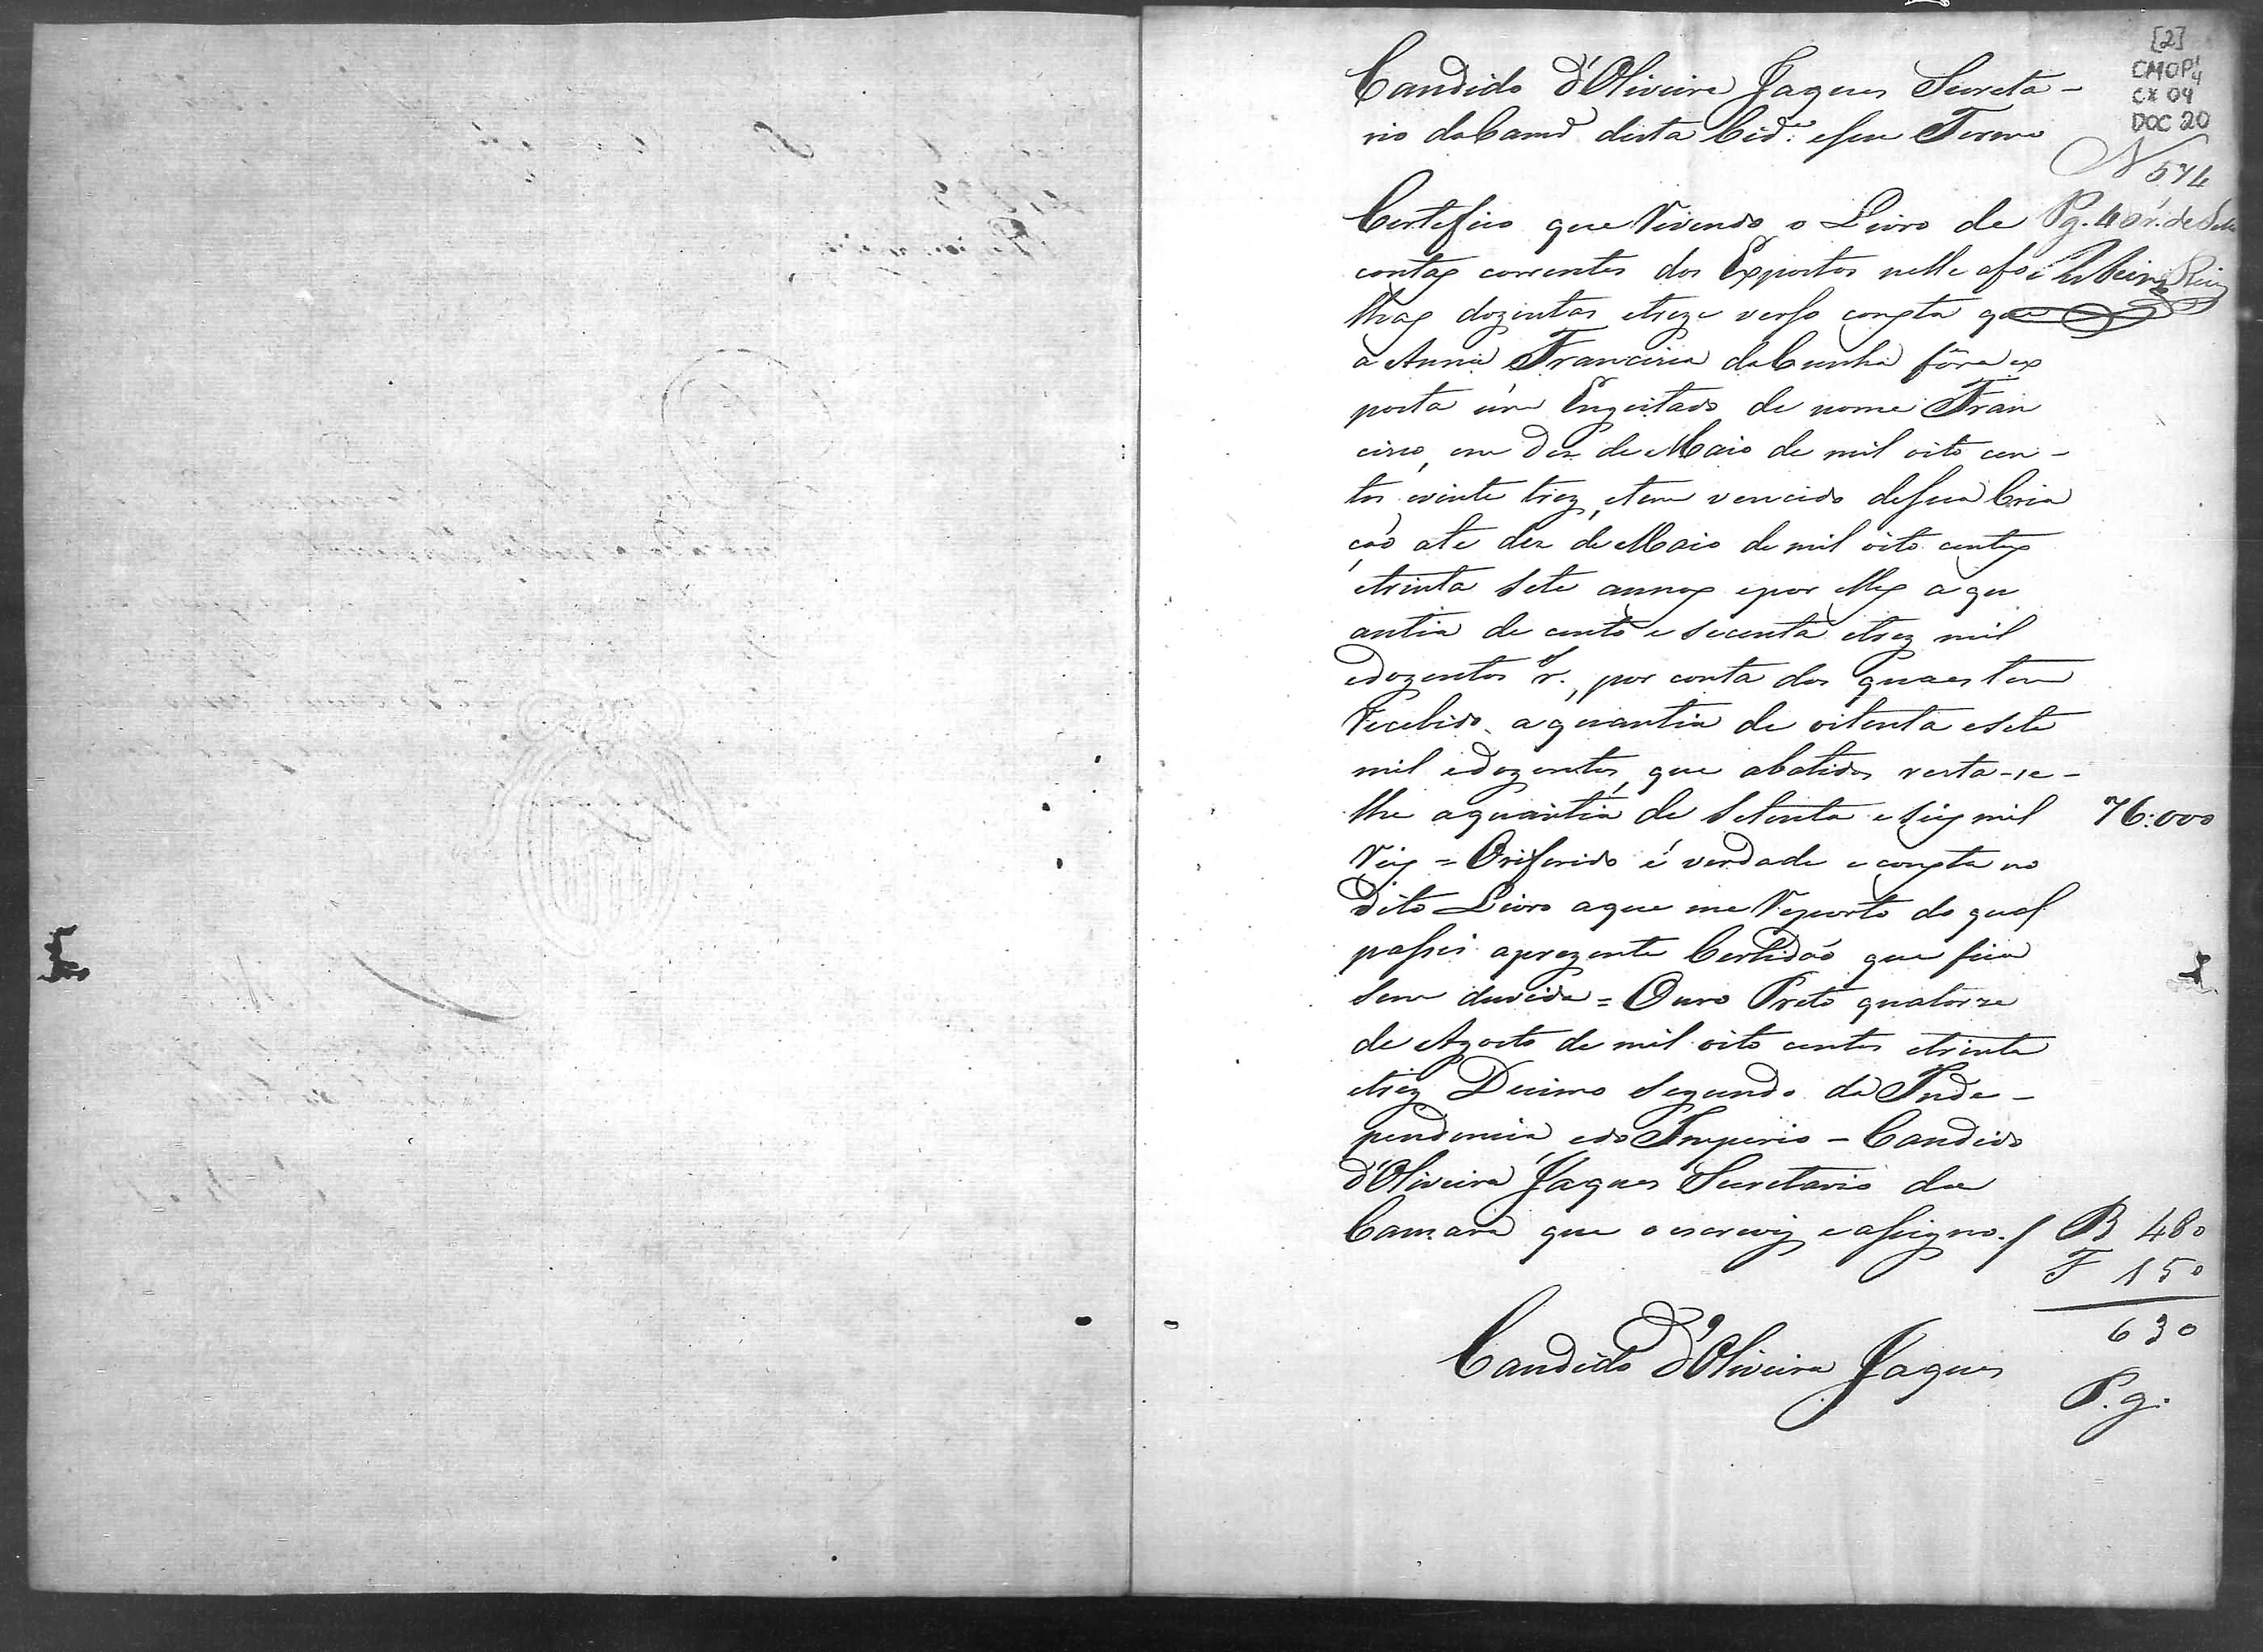 [2]
CMOP 1/4
CX 04
DOC 20
Candido d'Oliveira Jaques Secreta-
rio da Camrᵃ desta Cidᵉ. eseu Termo
N 574
Certefico que Vivendo o Livro de
Pg. 40 r. de Sello
contas correntes dos Expostos nelle afo
lhas dozentas etreze verso consta que
a Anna Francisca da Cunha fôra ex
posta úm Engeitado de nome Fran
cisco, em Dez de Maio de mil oito cen-
tos evinte trez, etem vencido desua Cria
çaõ ate dez de Maio de mil oito centos
etrinta sete annos epor elles a qu
antia de cento e secenta etrez mil
edozentos rˢ., por conta dos quaes tem
Recebido a quantia de oitenta esete
mil edozentos, que abatidos resta-se-
lhe aquantia de Setenta e seis mil
76:000
Reis = Oriferido é verdade e consta no
dito Livro aque me Reporto do qual
passei aprezente Certidaõ que fica
Sem duvida = Ouro Preto quatorze
de Agosto de mil oito centos etrinta
etrez Decimo Segundo da Inde-
pendencia edo Imperio - Candido
d'Oliveira Jaques Secretario da
Camara que o escrevy easigno./
B 480
F 150
630
Candido d'Oliveira Jaques
P.g.